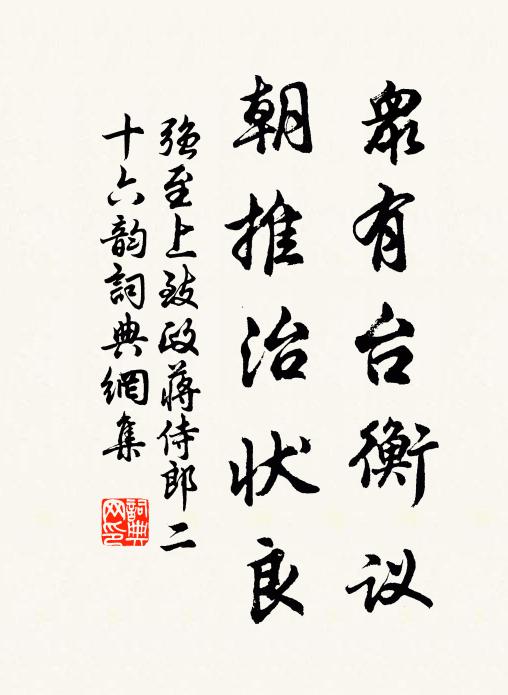 衆有台衡议
朝推治状良
强至上致政蒋侍郎二
十六韵詞典網集
詞典网印